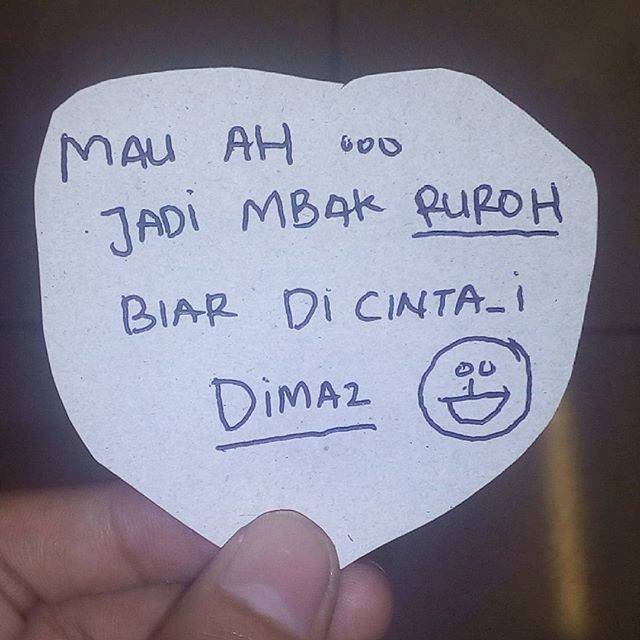 MAU AH ooo
JADi MBAK RUROH
BIAR Di CINTA_i
DiMAZ